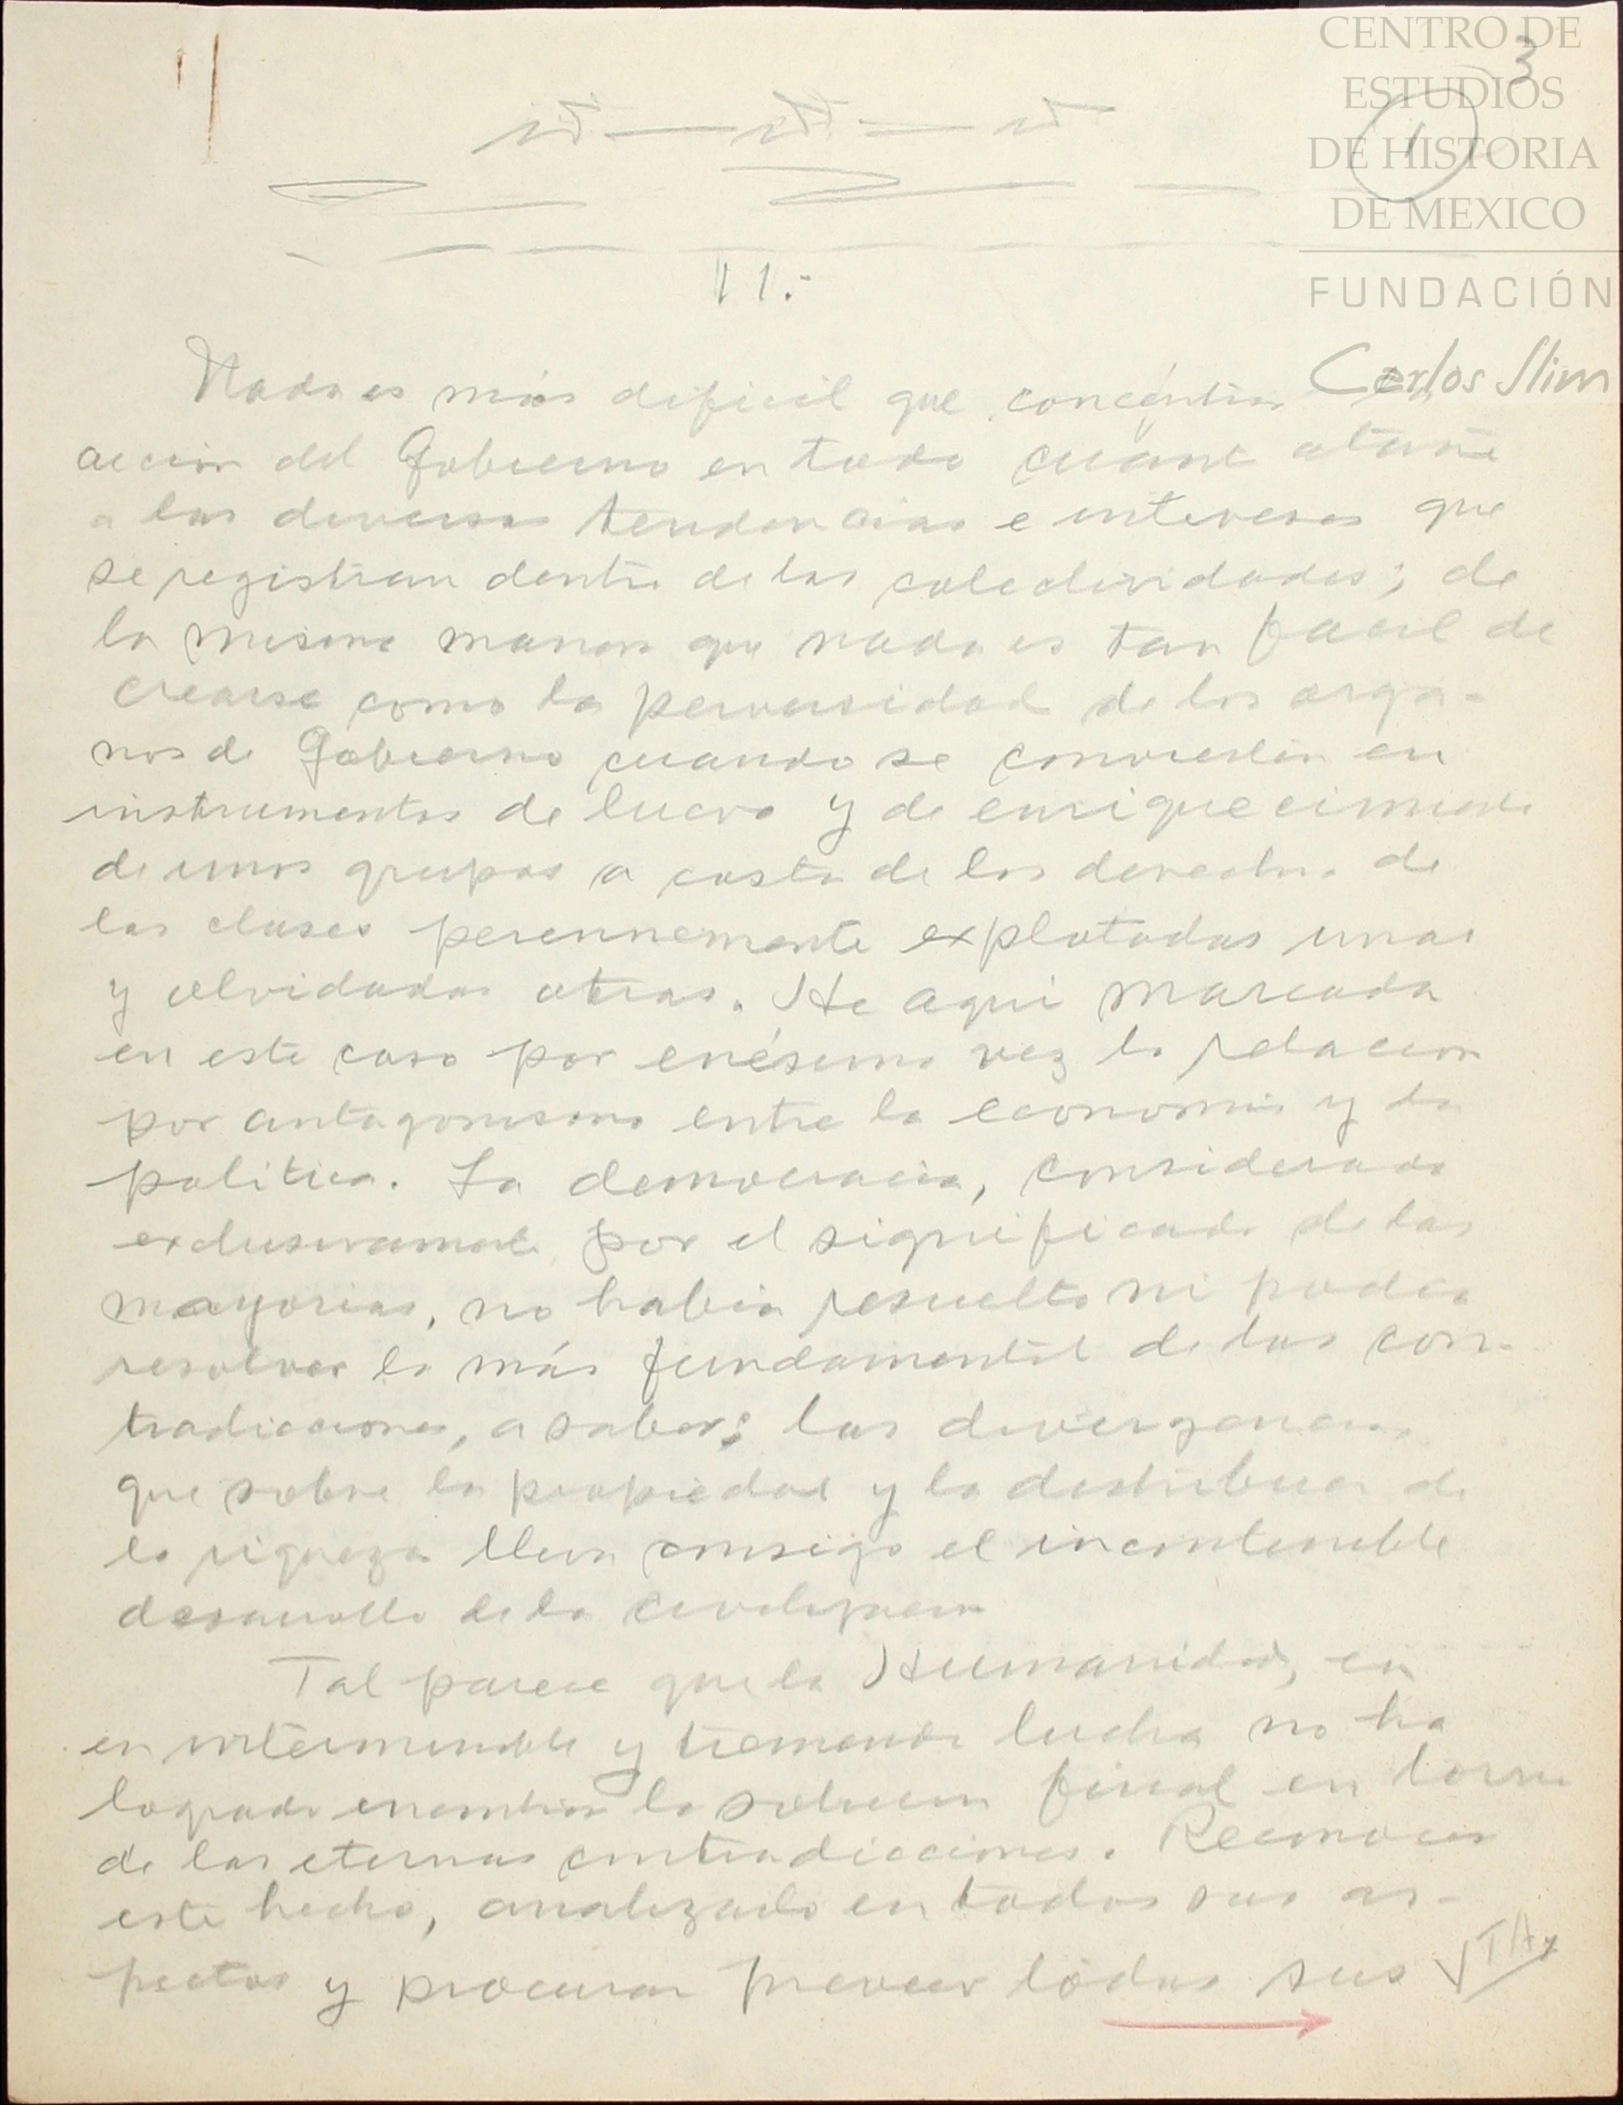 CENTRO DE
ESTUDIOS
DE HISTORIA
DE MEXICO
FUNDACIÓN
Carlos Slim
3
1
11.-
Nada es más dificil que concentrar
accion del Gobierno en todo cuant atañe
a las diversas tendencias e intereses que
se registran dentro de las colectividades; de
la misma manera que nada es tan facil de
crearse como la perversidad de los orga-
nos de Gobierno cuando se convierten en
instrumentos de lucro y de enriquecimiento
de unos grupos a costa de los derechos de
las clases perennemente explotadas unas
y olvidadas otras. He aqui marcada
en este caso por enésima vez la relacion
por antagonismo entre la economia y la
politica. La democracia, considerada
exclusivamente por el significado de las
mayorias, no habia resuelto ni podia
resolver la más fundamental de las con-
tradicciones, a saber; las divergencias
que sobre la propiedad y la distribucion de
la riqueza lleva consigo el incontenible
desarrollo de la civilizacion
Tal parece que la Humanidad, en
en interminable y tremenda lucha no ha
logrado encontrar la solucion final en torno
de las eternas contradicciones. Reconocer
este hecho, analizarlo en todos sus as-
pectos y procurar preveer todas sus